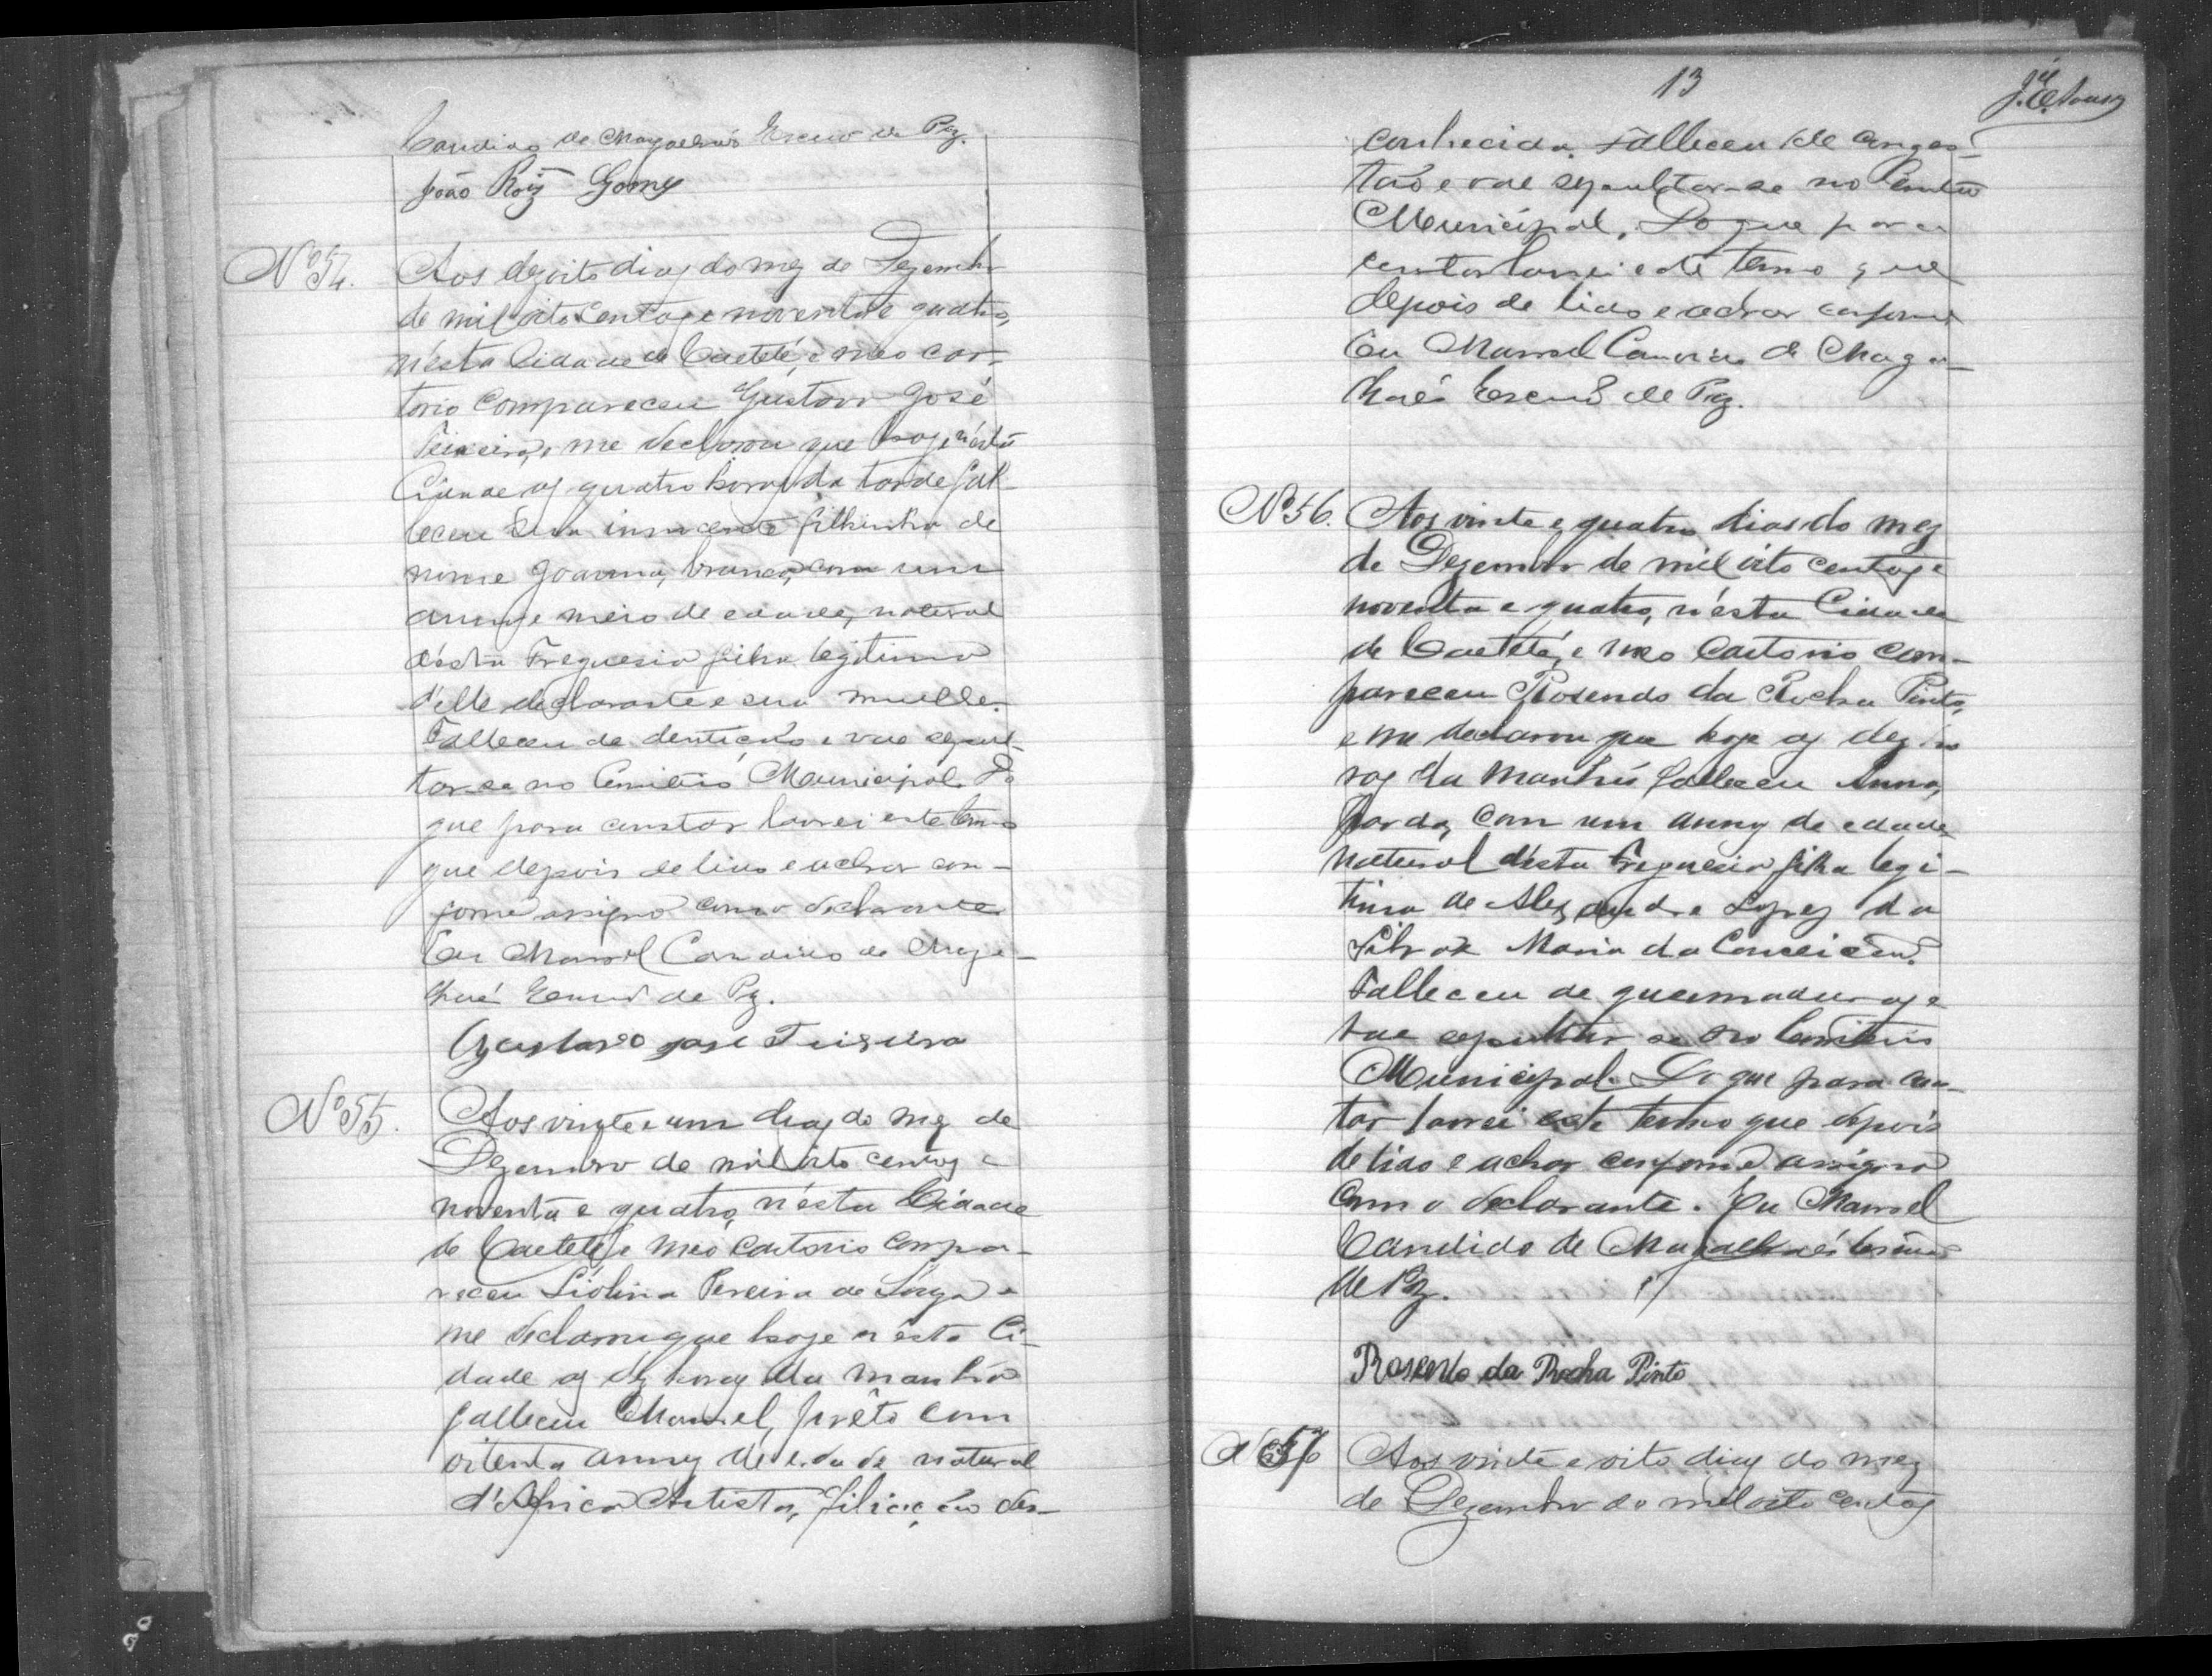 Candido de Magalhães Escrivão de Paz.
João Roiz Gomes
Nº 54.
Aos dezoito dias do mez de Dezembro
de mil oito centos e noventa e quatro,
n'esta Cidade de Caeteté, e meo car-
torio compareceu Gustavo José
Teixeira, e me declarou que hoje n'esta
Cidade as quatro horas da tarde fal-
leceu sua innocente filhinha de
nome Joanna, branca, com um
anno e meio de edade, natural
d'esta Freguesia filha legitima
d'elle declarante e sua mulher.
Falleceu de dentição e vae sepul-
tar-se no Cemiterio Municipal. Do
que para constar lavrei este termo
que depois de lido e achar con-
forme assigno com o declarante
Eu Manoel Candido de Maga-
lhaés Escrivão de Paz.
Gustavo José Teixeira
Nº 55.
Aos vinte e um dias do mez de
Dezembro de mil oito centos e
noventa e quatro, n'esta Cidade
de Caeteté e meo cartorio compa-
receu Pereira de Souza e
me declarou que hoje n'esta Ci-
dade as dez horas da manhã
falleceu Manoel, preto com
oitenta annos de edade natural
d'Africa Artista, filiação des-
13
conhecida. Falleceu de conges-
tão e vae sepultar-se no Cemiterio
Municipal. Do que para
constar lavrei este termo que
depois de lido e achar conforme
Eu Manoel Candido de Maga-
lhaés Escrivão de Paz.
Nº 56.
Aos vinte e quatro dias do mez
de Dezembro de mil oito centos e
noventa e quatro, n'esta Cidade
de Caeteté, e meo Cartorio com-
pareceu Rosendo da Rocha Pinto,
e me declarou que hoje as dez ho-
ras da manhã falleceu Anna,
parda, com um anno de edade
natural d'esta Freguesia filha legi-
tima de Alexandre Lopes da
Silva e Maria da Conceição.
Falleceu de queimaduras e
vae sepultar-se no Cemiterio
Municipal. Do que para cons-
tar lavrei este termo que depois
de lido e achar conforme assigno
com o declarante. Eu Manoel
Candido de Magalhaés Escrivão
de Paz.
Rosendo da Rocha Pinto
Nº 57
Aos vinte e oito dias do mez
de Dezembro de mil oito centos